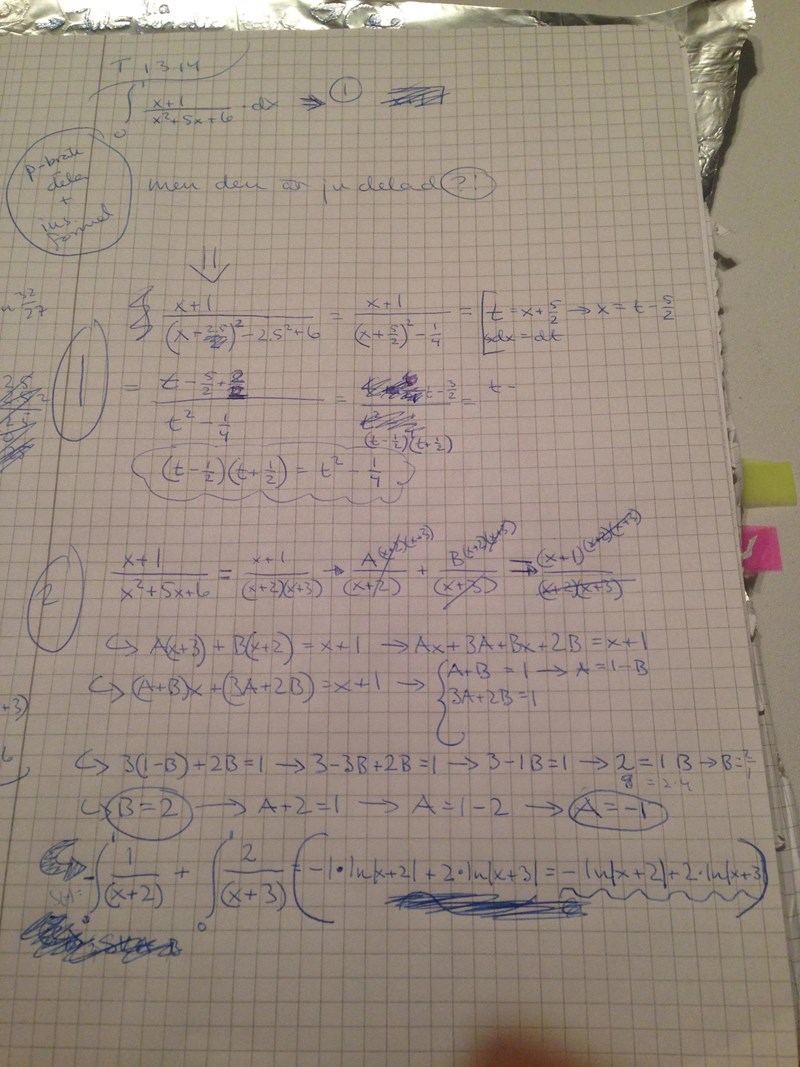 T 13.14
∫₀¹ x+1 / x²+5x+6 · dx ⇒ ①
p-bråk
dela
+
formel
men den är ju delad ?!
⇓
x+1 / (x+2.5)² - 2.5² + 6 = x+1 / (x+5/2)² - 1/4 = [t = x+5/2 → x = t - 5/2
dx = dt
1
= t - 5/2 + 2/2 / t² - 1/4 = t - 3/2 / (t-1/2)(t+1/2) = t -
(t-1/2)(t+1/2) = t² - 1/4
2
x+1 / x²+5x+6 = x+1 / (x+2)(x+3) → A(x+2)(x+3) / (x+2) + B(x+2)(x+3) / (x+3) = (x+1)(x+2)(x+3) / (x+2)(x+3)
↪ A(x+3) + B(x+2) = x+1 → Ax+3A+Bx+2B = x+1
↪ (A+B)x + (3A+2B) = x+1 → { A+B = 1 → A = 1-B
3A+2B = 1
↪ 3(1-B) + 2B = 1 → 3-3B+2B = 1 → 3-1B = 1 → 2 = 1B → B = 2/1
8 = 2·4
↪ B = 2 → A+2 = 1 → A = 1-2 → A = -1
-∫₀¹ 1/(x+2) + ∫₀¹ 2/(x+3) = (-1·ln|x+2| + 2·ln|x+3| = -ln|x+2| + 2·ln|x+3|)
+3)